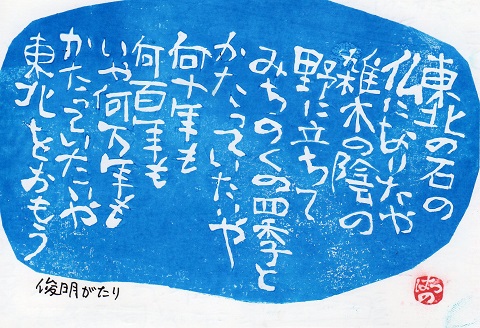 東北の石の
仏になりたや
雑木の陰の
野に立ちて
みちのくの四季と
かたっていたいや
何十年も
何百年も
いや何万年も
かたっていたいや
東北をおもう
俊明がたり